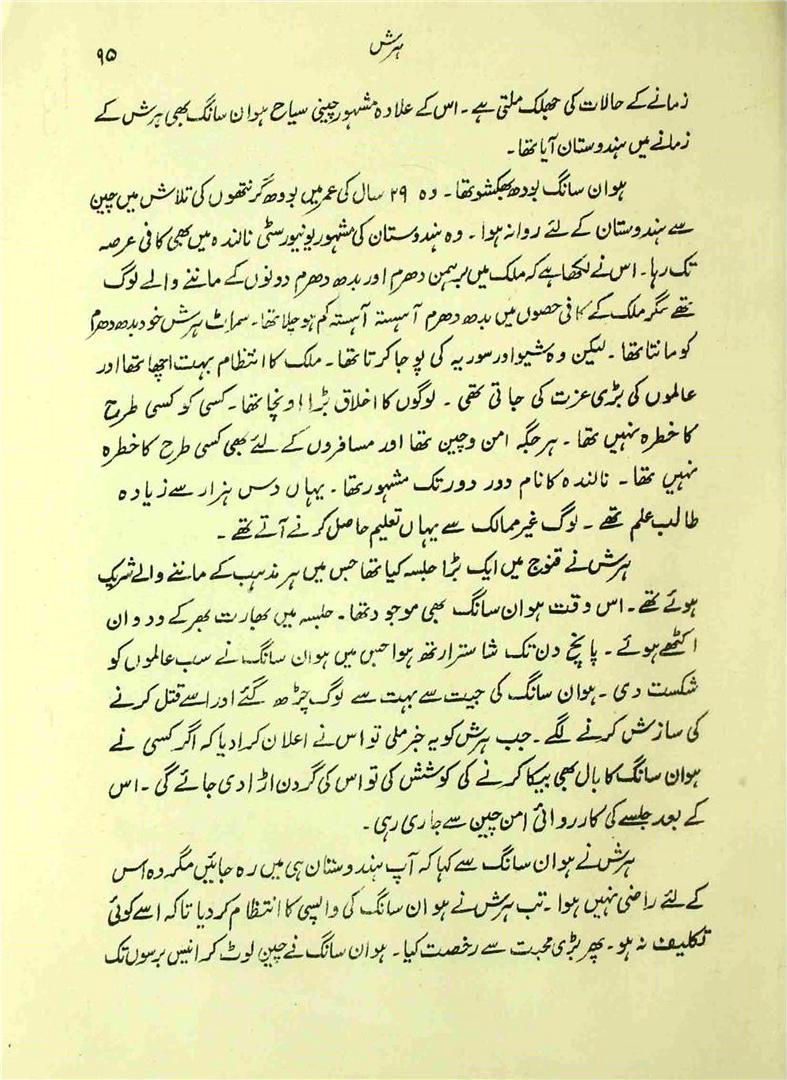 ہرش
۹۵
زمانے کے حالات کی جھلک ملتی ہے۔ اس کے علاوہ مشہور چینی سیاح ہوان سانگ بھی ہرش کے
زمانے میں ہندوستان آیا تھا۔
ہوان سانگ بودھ بھکشو تھا۔ وہ ۲۹ سال کی عمر میں بودھ گرنتھوں کی تلاش میں چین
سے ہندوستان کے لئے روانہ ہوا۔ وہ ہندوستان کی مشہور یونیورسٹی نالندہ میں بھی کافی عرصہ
تک رہا۔ اس نے لکھا ہے کہ ملک میں برہمن دھرم اور بدھ دھرم دونوں کے ماننے والے لوگ
تھے مگر ملک کے کافی حصوں میں بدھ دھرم آہستہ آہستہ کم ہو چلا تھا۔ سمراٹ ہرش خود بدھ دھرم
کو مانتا تھا۔ لیکن وہ شیو اور سوریہ کی پوجا کرتا تھا۔ ملک کا انتظام بہت اچھا تھا اور
عالموں کی بڑی عزت کی جاتی تھی۔ لوگوں کا اخلاق بڑا اونچا تھا۔ کسی کو کسی طرح
کا خطرہ نہیں تھا۔ ہر جگہ امن و چین تھا اور مسافروں کے لئے بھی کسی طرح کا خطرہ
نہیں تھا۔ نالندہ کا نام دور دور تک مشہور تھا۔ یہاں دس ہزار سے زیادہ
طالب علم تھے۔ لوگ غیر ممالک سے یہاں تعلیم حاصل کرنے آتے تھے۔
ہرش نے قنوج میں ایک بڑا جلسہ کیا تھا جس میں ہر مذہب کے ماننے والے شریک
ہوئے تھے۔ اس وقت ہوان سانگ بھی موجود تھا۔ جلسہ میں بھارت بھر کے ودوان
اکٹھے ہوئے۔ پانچ دن تک شاسترارتھ ہوا جس میں ہوان سانگ نے سب عالموں کو
شکست دی۔ ہوان سانگ کی جیت سے بہت سے لوگ چڑھ گئے اور اسے قتل کرنے
کی سازش کرنے لگے۔ جب ہرش کو یہ خبر ملی تو اس نے اعلان کرا دیا کہ اگر کسی نے
ہوان سانگ کا بال بھی بیکا کرنے کی کوشش کی تو اس کی گردن اڑا دی جائے گی۔ اس
کے بعد جلسے کی کارروائی امن چین سے جاری رہی۔
ہرش نے ہوان سانگ سے کہا کہ آپ ہندوستان ہی میں رہ جائیں مگر وہ اس
کے لئے راضی نہیں ہوا۔ تب ہرش نے ہوان سانگ کی واپسی کا انتظام کر دیا تاکہ اسے کوئی
تکلیف نہ ہو۔ پھر بڑی محبت سے رخصت کیا۔ ہوان سانگ نے چین لوٹ کر انیس برسوں تک